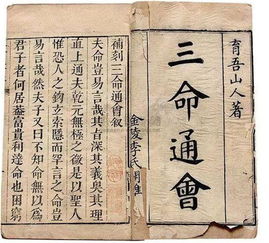 育吾山人著
三命通會
補刻三命通會叙
夫命豈易言哉其旨深其義奥其理
直上通夫乾元無極之後是以聖人
惟恐人之鉤玄索隱而罕言之命豈
易言哉然夫子又曰不知命無以爲
君子者何居蓋富貴利達命也困窮